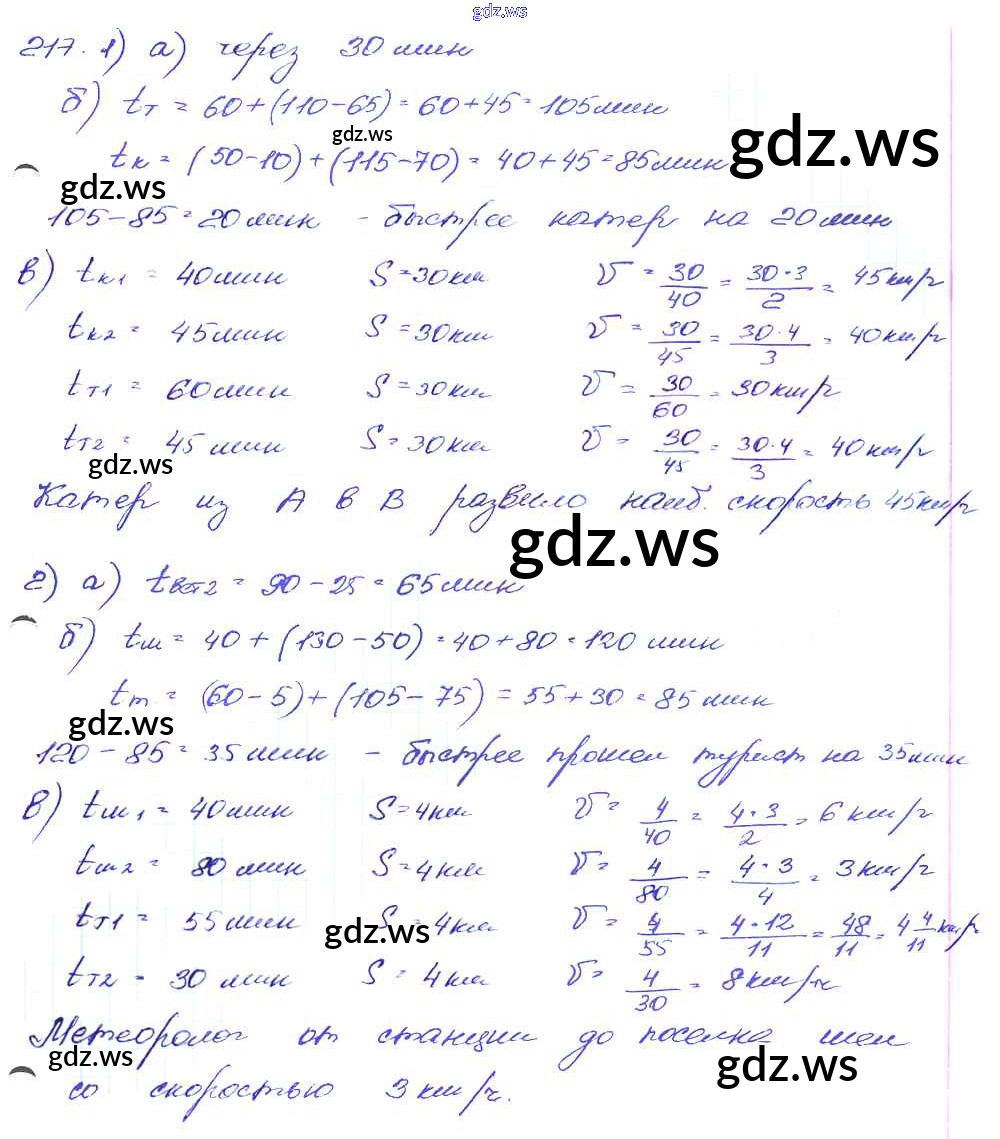 gdz.ws
217. 1) а) через 30 мин
б) tт = 60 + (110 - 65) = 60 + 45 = 105 мин
gdz.ws
gdz.ws
tк = (50 - 10) + (115 - 70) = 40 + 45 = 85 мин
gdz.ws
105 - 85 = 20 мин - быстрее катер на 20 мин
в) tк1 = 40 мин S = 30 км V = 30/40 = 30·3/2 = 45 км/ч
tк2 = 45 мин S = 30 км V = 30/45 = 30·4/3 = 40 км/ч
tт1 = 60 мин S = 30 км V = 30/60 = 30 км/ч
tт2 = 45 мин S = 30 км V = 30/45 = 30·4/3 = 40 км/ч
gdz.ws
Катер из А в В развило наиб. скорость 45 км/ч
gdz.ws
2) а) tвст2 = 90 - 25 = 65 мин
б) tм = 40 + (130 - 50) = 40 + 80 = 120 мин
tт = (60 - 5) + (105 - 75) = 55 + 30 = 85 мин
gdz.ws
120 - 85 = 35 мин - быстрее прошел турист на 35 мин
в) tм1 = 40 мин S = 4 км V = 4/40 = 4·3/2 = 6 км/ч
tм2 = 80 мин S = 4 км V = 4/80 = 4·3/4 = 3 км/ч
tт1 = 55 мин S = 4 км V = 4/55 = 4·12/11 = 48/11 = 4 4/11 км/ч
gdz.ws
tт2 = 30 мин S = 4 км V = 4/30 = 8 км/ч
Метеоролог от станции до поселка шел
gdz.ws
gdz.ws
со скоростью 3 км/ч.